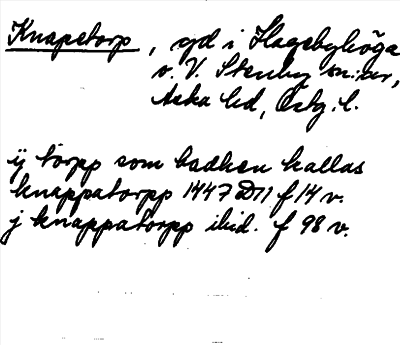 Knapetorp, gd i Hagebyhöga
o. V. Stenby sn:ar,
Aska hd, Östg. l.
ij torpp som badhen kallas
knappatorpp 1447 D11 f 14 v.
j knappatorpp ibid. f 98 v.